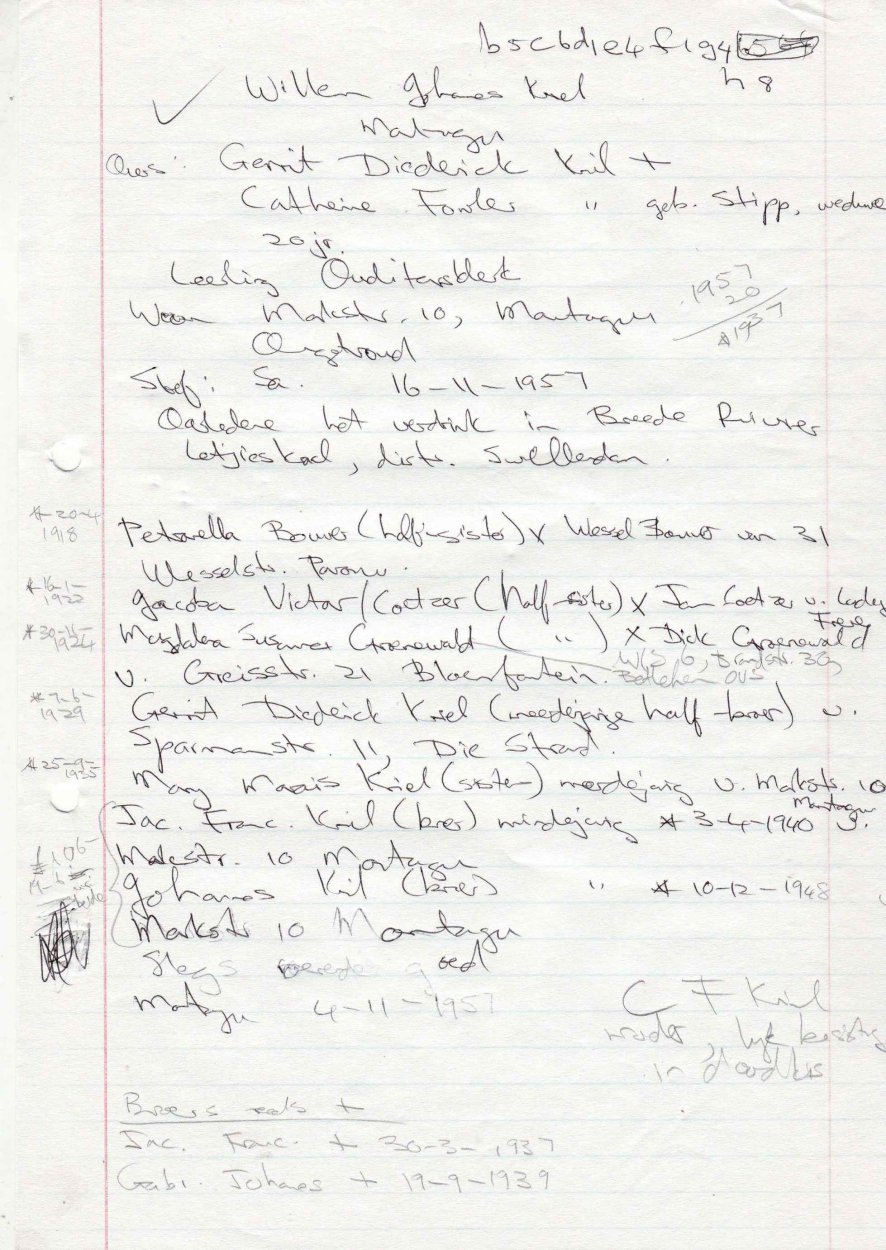 b5c6d1e4f1g4
h8
Willem Johannes Kriel
Montagu
Ouers: Gerrit Diederick Kriel +
Catherine Fowler " geb. Stipp, weduwee
20 jr.
Leerling Ouditeursklerk
Woon Markstr. 10, Montagu
Ongetroud
1957
20
*1937
Sterf: Sa. 16-11-1957
Oorledene het verdrink in Breede Rivier
distr. Swellendam.
*20-4
1918
Petronella Bouwer (half-sister) x Wessel Bouwer van 31
Wesselstr. Parow.
*16-1-
1922
Jacoba Victor/Coetzer (half-sister) x Jan Coetzer v.
*30-11-
1924
Magdalena Susanna Groenewald ( " ) x Dick Groenewald
v. Greisstr. 21 Bloemfontein.
Betlehem OVS
*7-6-
1929
Gerrit Diederick Kriel (meerderjarige half-broer) v.
Sparmanstr. 11, Die Strand.
*25-9-
1935
Mary Marais Kriel (sister) meerderjarig v. Markstr. 10
Montagu
Jac. Franc. Kriel (broer) minderjarig * 3-4-1940 v.
Markstr. 10 Montagu
Johannes Kriel (broer) " * 10-12-1948
Markstr 10 Montagu
Slegs roerende goed
Montagu 4-11-1957
C F Kriel
moeder, lyk besigtig
in doodhuis
Broers reeds +
Jac. Franc. + 30-3-1937
Gabr. Johannes + 19-9-1939